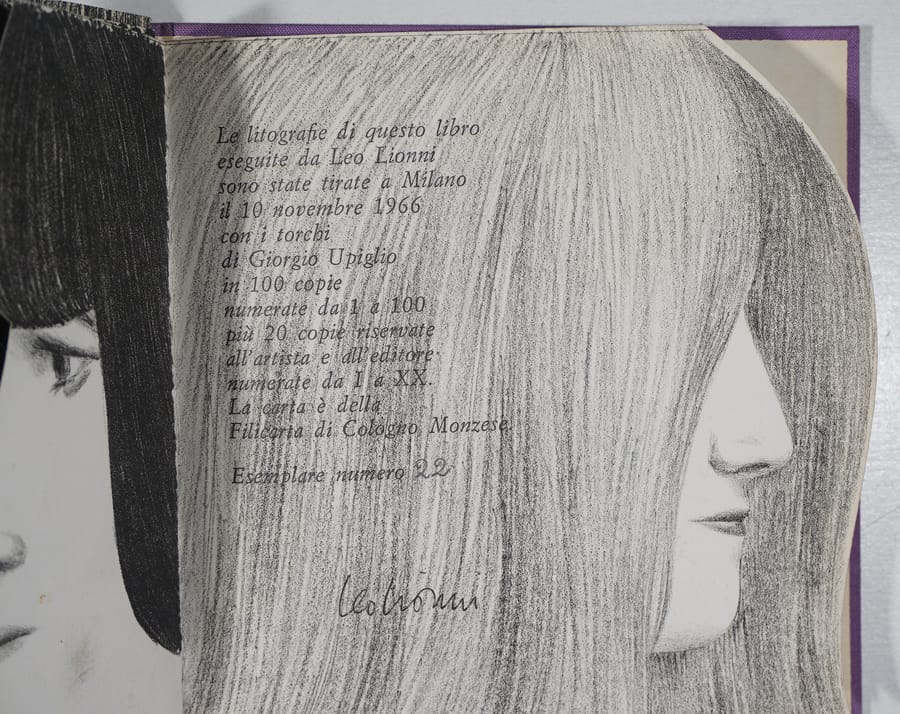 Le litografie di questo libro
eseguite da Leo Lionni
sono state tirate a Milano
il 10 novembre 1966
con i torchi
di Giorgio Upiglio
in 100 copie
numerate da 1 a 100
più 20 copie riservate
all'artista e all'editore
numerate da I a XX.
La carta è della
Filicarta di Cologno Monzese.
Esemplare numero 22
Leo Lionni